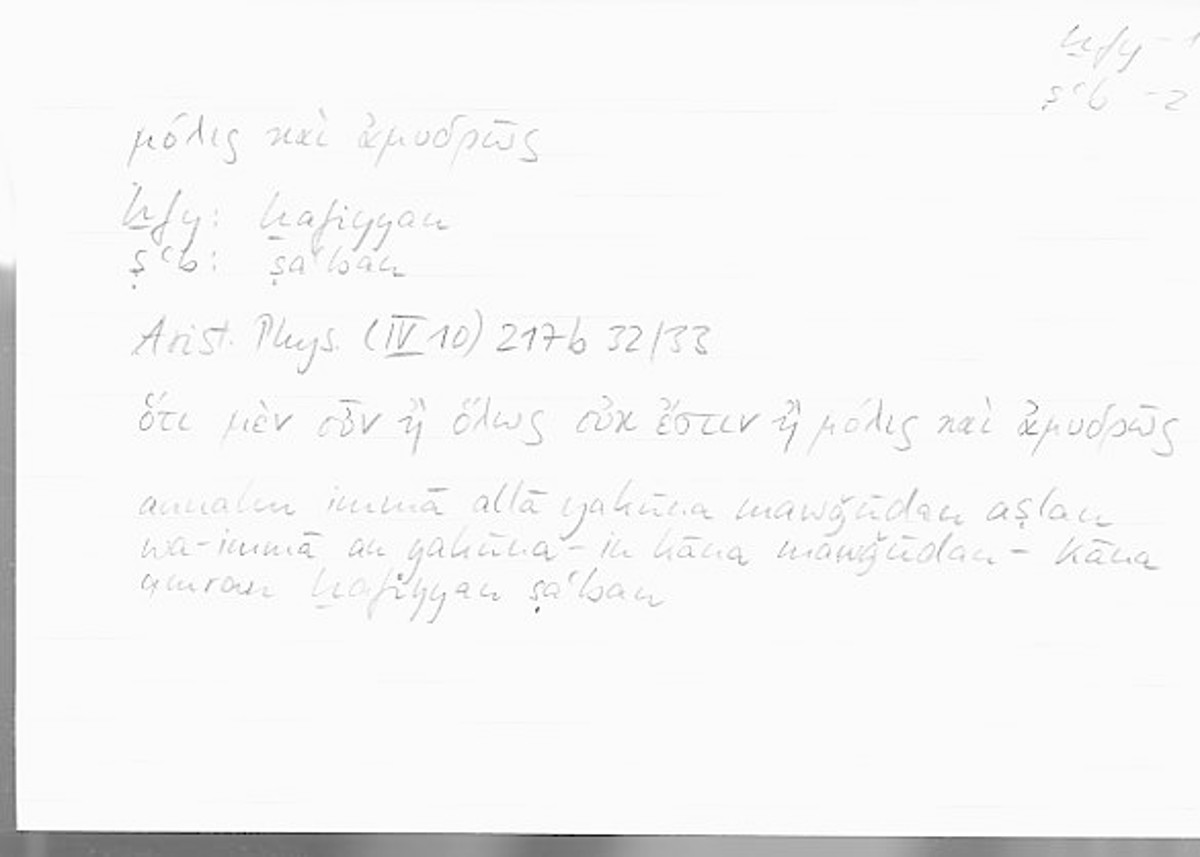 ḫfy - 1
ṣʿb - 2
μόλις καὶ ἀμυδρῶς
ḫfy: ḫafiyyan
ṣʿb: ṣaʿban
Arist. Phys. (IV 10) 217b 32/33
ὅτι μὲν οὖν ἢ ὅλως οὐκ ἔστιν ἢ μόλις καὶ ἀμυδρῶς
annahu immā allā yakūna mawǧūdan aṣlan
wa-immā an yakūna - in kāna mawǧūdan - kāna
amran ḫafiyyan ṣaʿban